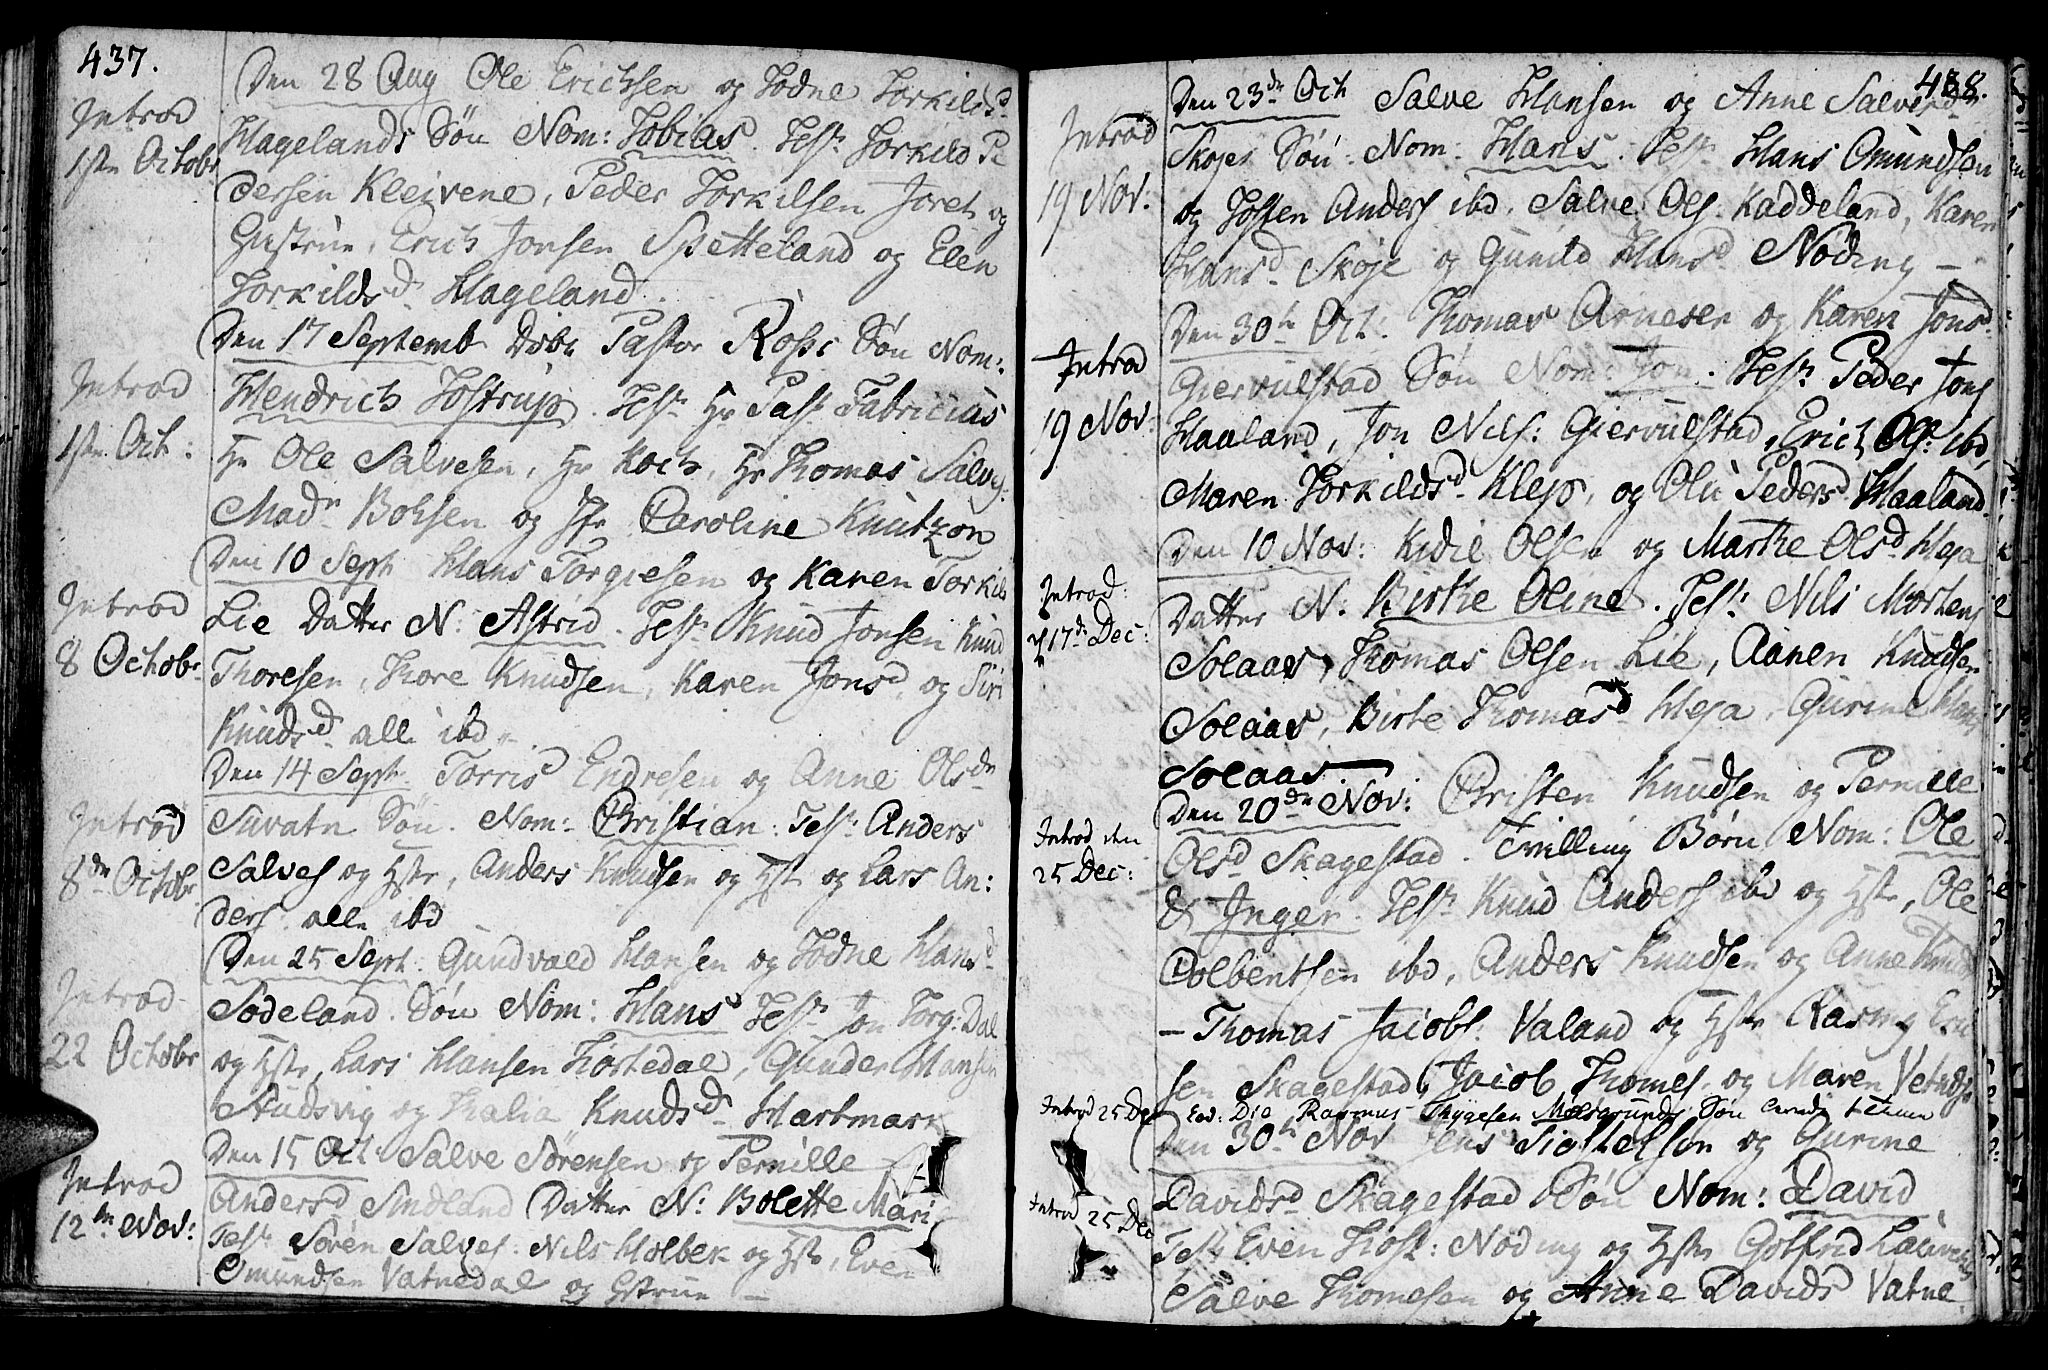 437.
Introd
1ste Octobr
Den 28 Aug Ole Erichsen og Todne Torkildsd
Hagelands Søn Nom: Tobias. Test: Torkild Pe
dersen Kleivene, Peder Torkilsen Joret og
Gustrue, Erich Jonsen Spetteland og Elen
Torkildsd Hageland.
Introd
1ste Oct:
Den 17 Septemb Døbt Pastor Rosss Søn Nom:
Hendrich Tostrup. Test: Hr Past: Fabricius
Hr Ole Salvesen, Hr Koch, Hr Thomas Salves:
Madm Boysen og Jfr Caroline Knutzon
Introd
8 Octobr
Den 10 Sept Hans Torgiesen og Karen Torkils
Lie Datter N: Astrid. Test: Knud Jonsen Knud
Thoresen, Thore Knudsen, Karen Jonsd og Siri
Knudsd alle ibd
Introd
8de Octobr
Den 14 Sept. Torris Endresen og Anne Olsdr
Suvatn Søn. Nom: Christian: Test: Anders
Salves og Hstr, Anders Knudsen og Hst og Lars An:
ders alle ibd
Introd
22 Octobr
Den 25 Sept: Gundvald Hansen og Todne Hansd
Sødeland. Søn Nom: Hans Test: Jon Torg: Dal
og Hstr, Lars Hansen Kostedal, Gunder Hansen
Studsvig og Thalia Knudsd Hartmark
Introd
12te Nov:
Den 15 Oct Salve Sørensen og Pernille
Andersd Sindland Datter N: Bolette Mari
Test: Søren Salves: Nils Holbek og Hstr, Even
Omundsen Vatnedal og Hstrue
438.
Introd
19 Nov:
Den 23de Oct Salve Hansen og Anne Salvesd
Skojes Søn: Nom: Hans. Test: Hans Omundsen
og Josten Anders ibd. Salve Ols. Kaddeland, Karen
Hansd Skoje og Gunild Hansd Nøding
Introd
19 Nov:
Den 30te Oct: Thomas Arnesen og Karen Jonsd
Giervulstad Søn Nom: Jon. Test: Peder Jons
Haaland, Jon Nils: Giervulstad, Erich Ols: ibd,
Maren Torkildsd Klep, og Olu Pedersd Haaland.
Introd:
17de Dec:
Den 10 Nov: Kidil Olsen og Marthe Olsd Heja
Datter N: Birthe Oline. Test: Nils Mortens
Solaas, Thomas Olsen Lie, Aanen Knudsen
Solaas, Birte Thomasd Heja, Gurine Hans
Solaas.
Introd den
25 Dec:
Den 20de Nov: Christen Knudsen og Pernille
Olsd Skagestad. Tvilling Børn Nom: Ole
& Inger. Test: Knud Anders ibd og Hstr, Ole
Colbentsen ibd, Anders Knudsen og Anne Knuds
— Thomas Jacobs. Valand og Hstr Rasmus Eri
sen Skagestad, Jacob Thomes. og Maren Vetnds
Introd 25 Dec
Eod: Die Rasmus Thygesen Møesgrunds Søn
Introd 25 Dec
Den 30te Nov Jens Siostelsen og Gurine
Davidsd Skagestad Søn Nom: David
Test: Even Tost: Nøding og Hstr Gotfrid Lauves
Salve Thomesen og Anne Davids Vatne